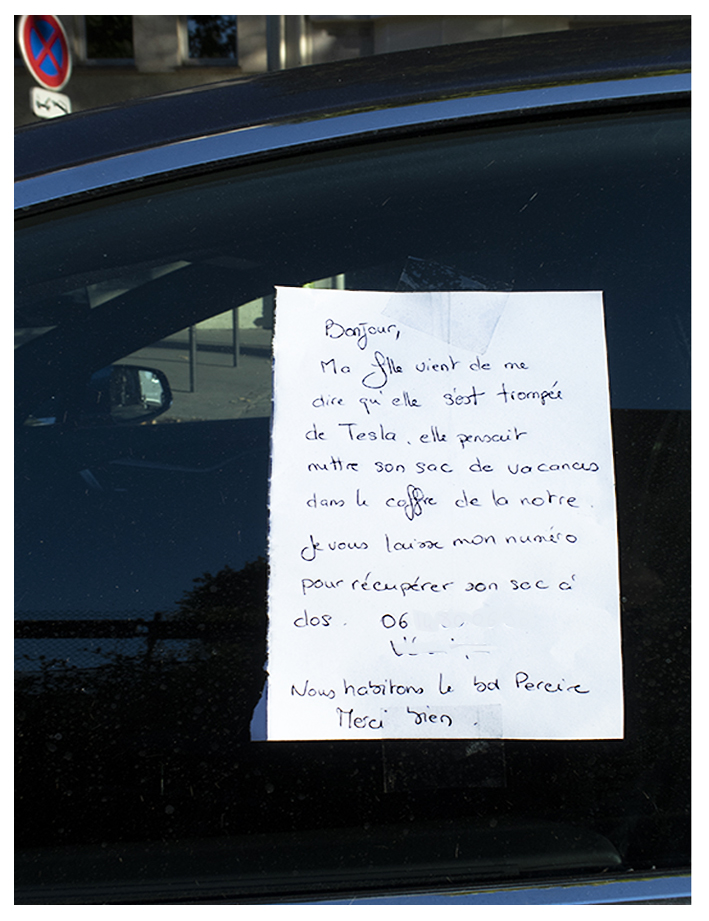 Bonjour,
Ma fille vient de me
dire qu'elle s'est trompée
de Tesla, elle pensait
mettre son sac de vacances
dans le coffre de la notre.
Je vous laisse mon numéro
pour récupérer son sac à
dos. 06
Nous habitons le bd Pereire
Merci bien.